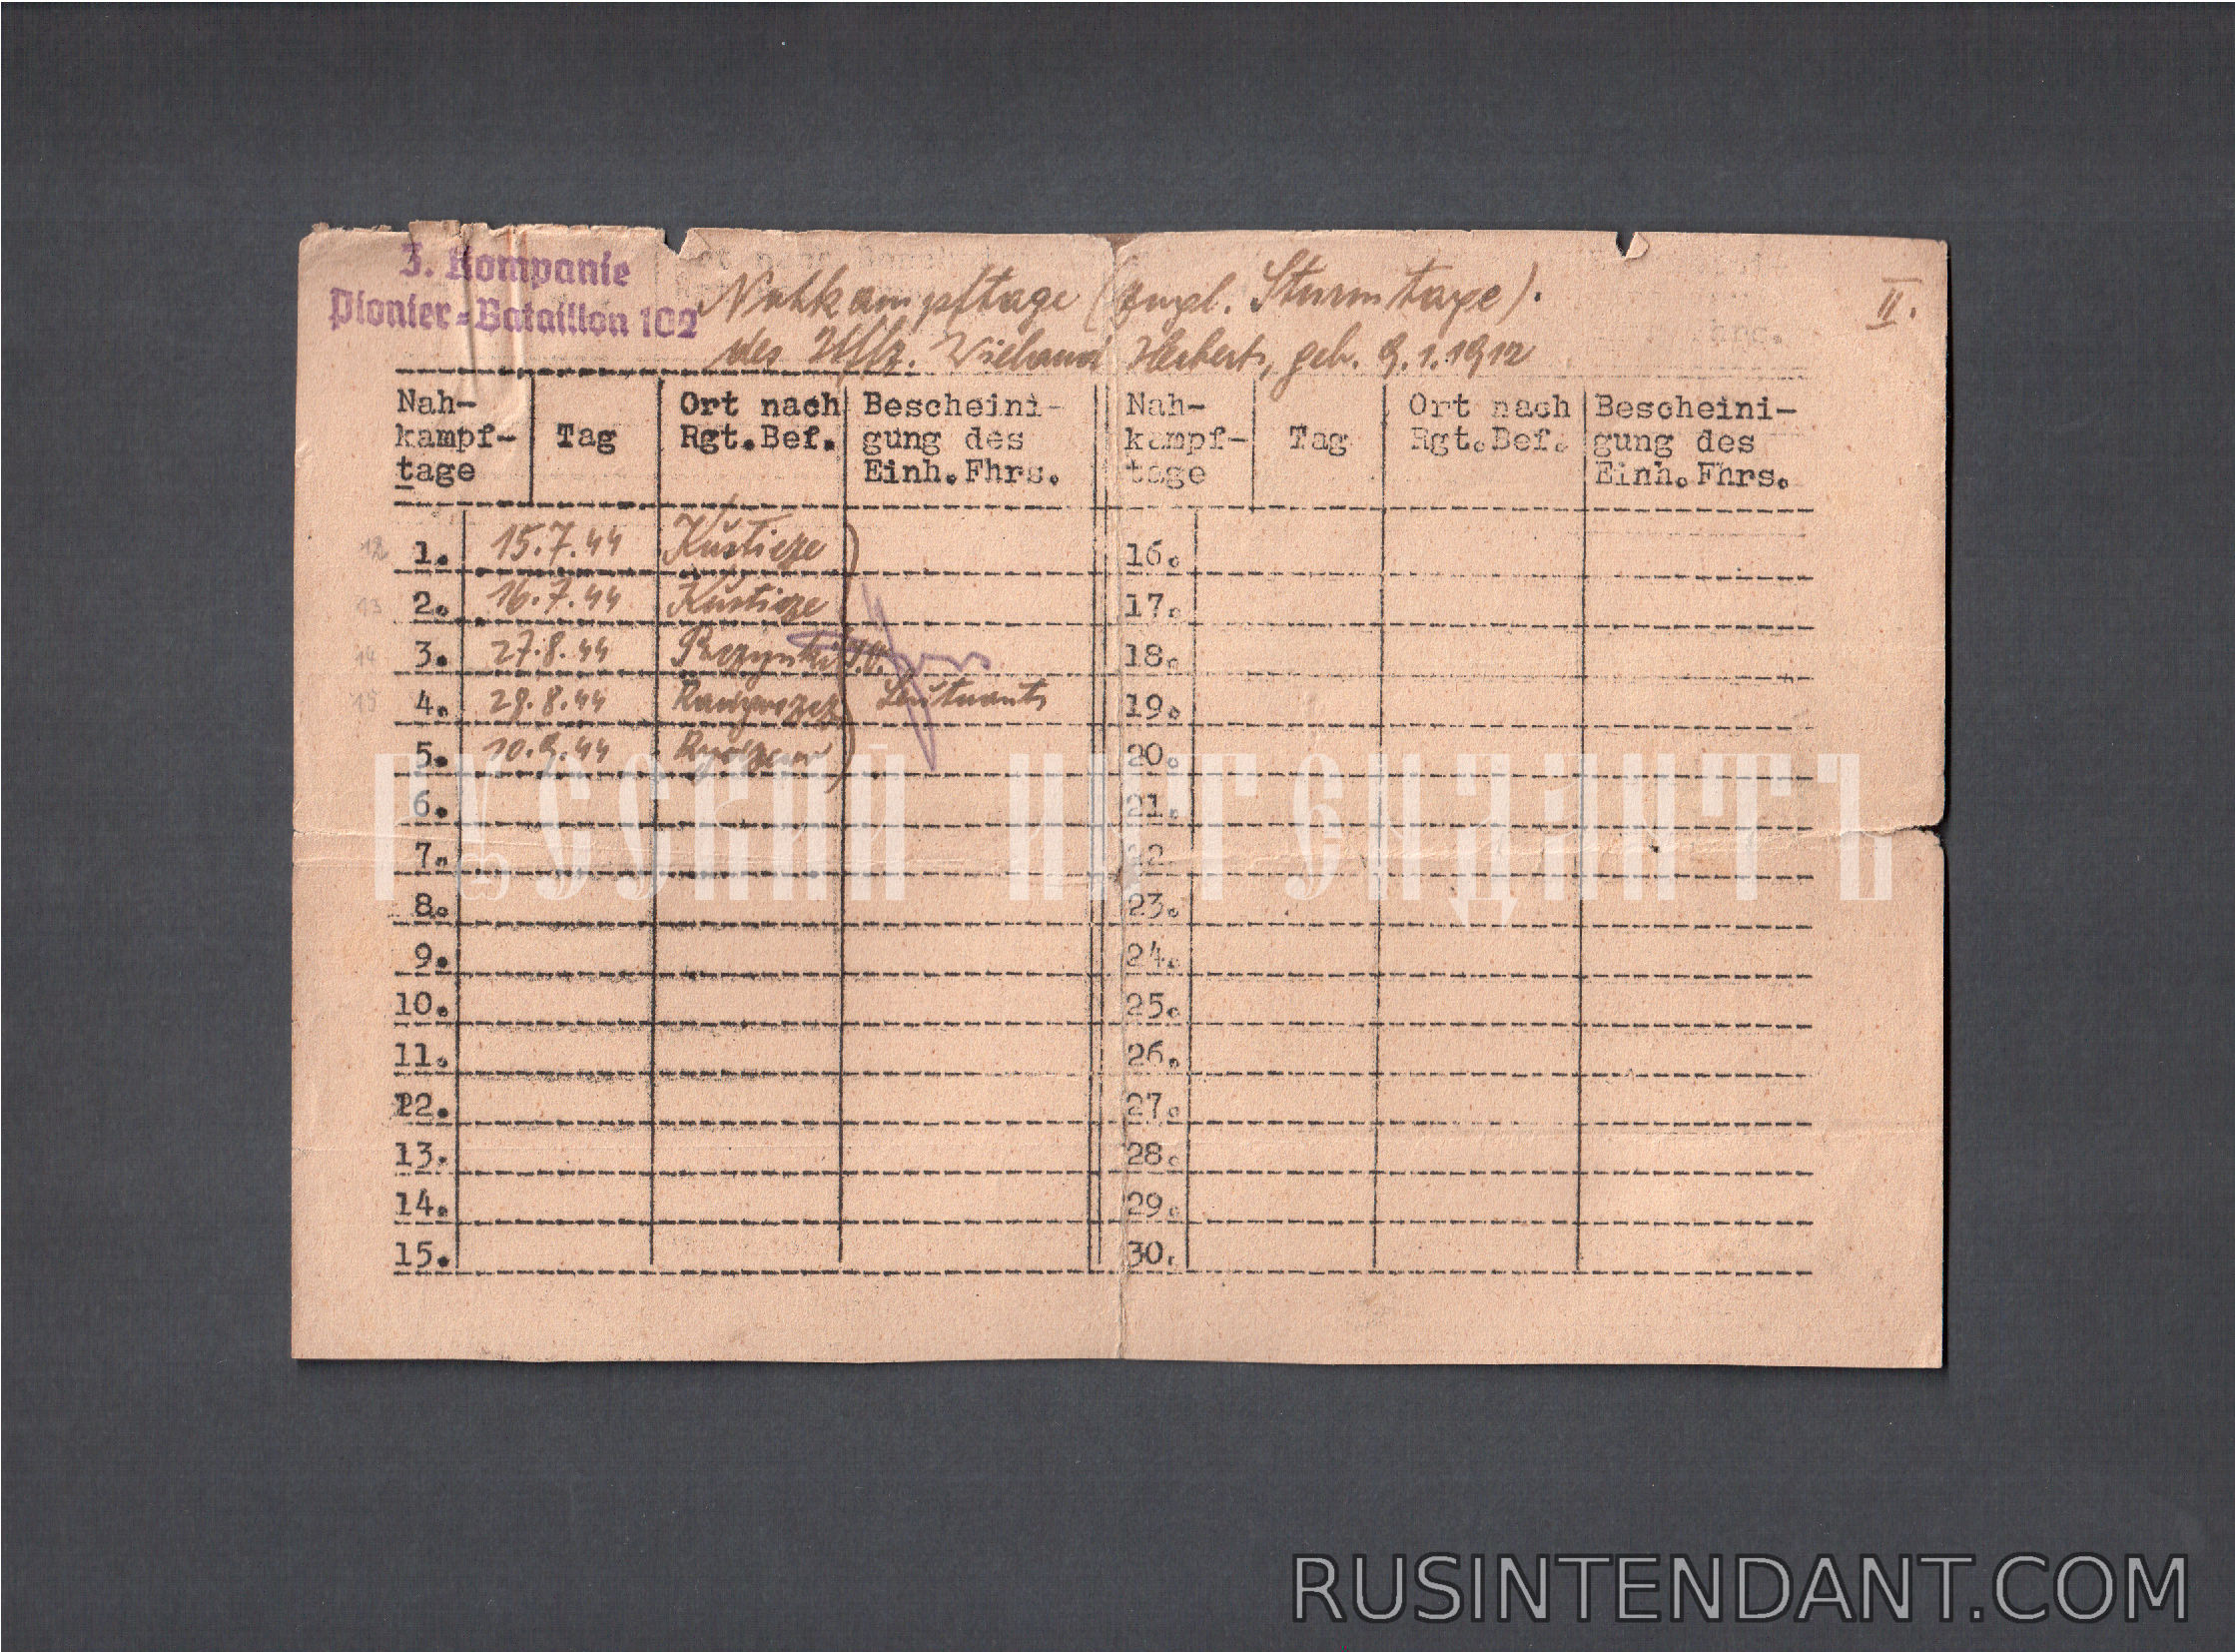 3. Kompanie
Pionier-Bataillon 102
Nahkampftage (zugl. Sturmtage).
II.
des Uffz. Wieland Herbert, geb. 9.1.1912
Nah- Ort nach Bescheini- Nah- Ort nach Bescheini-
kampf- Tag Rgt.Bef. gung des kampf- Tag Rgt.Bef. gung des
tage Einh.Fhrs. tage Einh.Fhrs.
12 1. 15.7.44 16.
13 2. 16.7.44 17.
14 3. 27.8.44 18.
15 4. 29.8.44 Leutnant 19.
5. 10.9.44 20.
РУССКІЙ ИНТЕНДАНТЪ
6. 21.
7. 22
8. 23.
9. 24.
10. 25.
11. 26.
12. 27.
13. 28.
14. 29.
15. 30.
RUSINTENDANT.COM